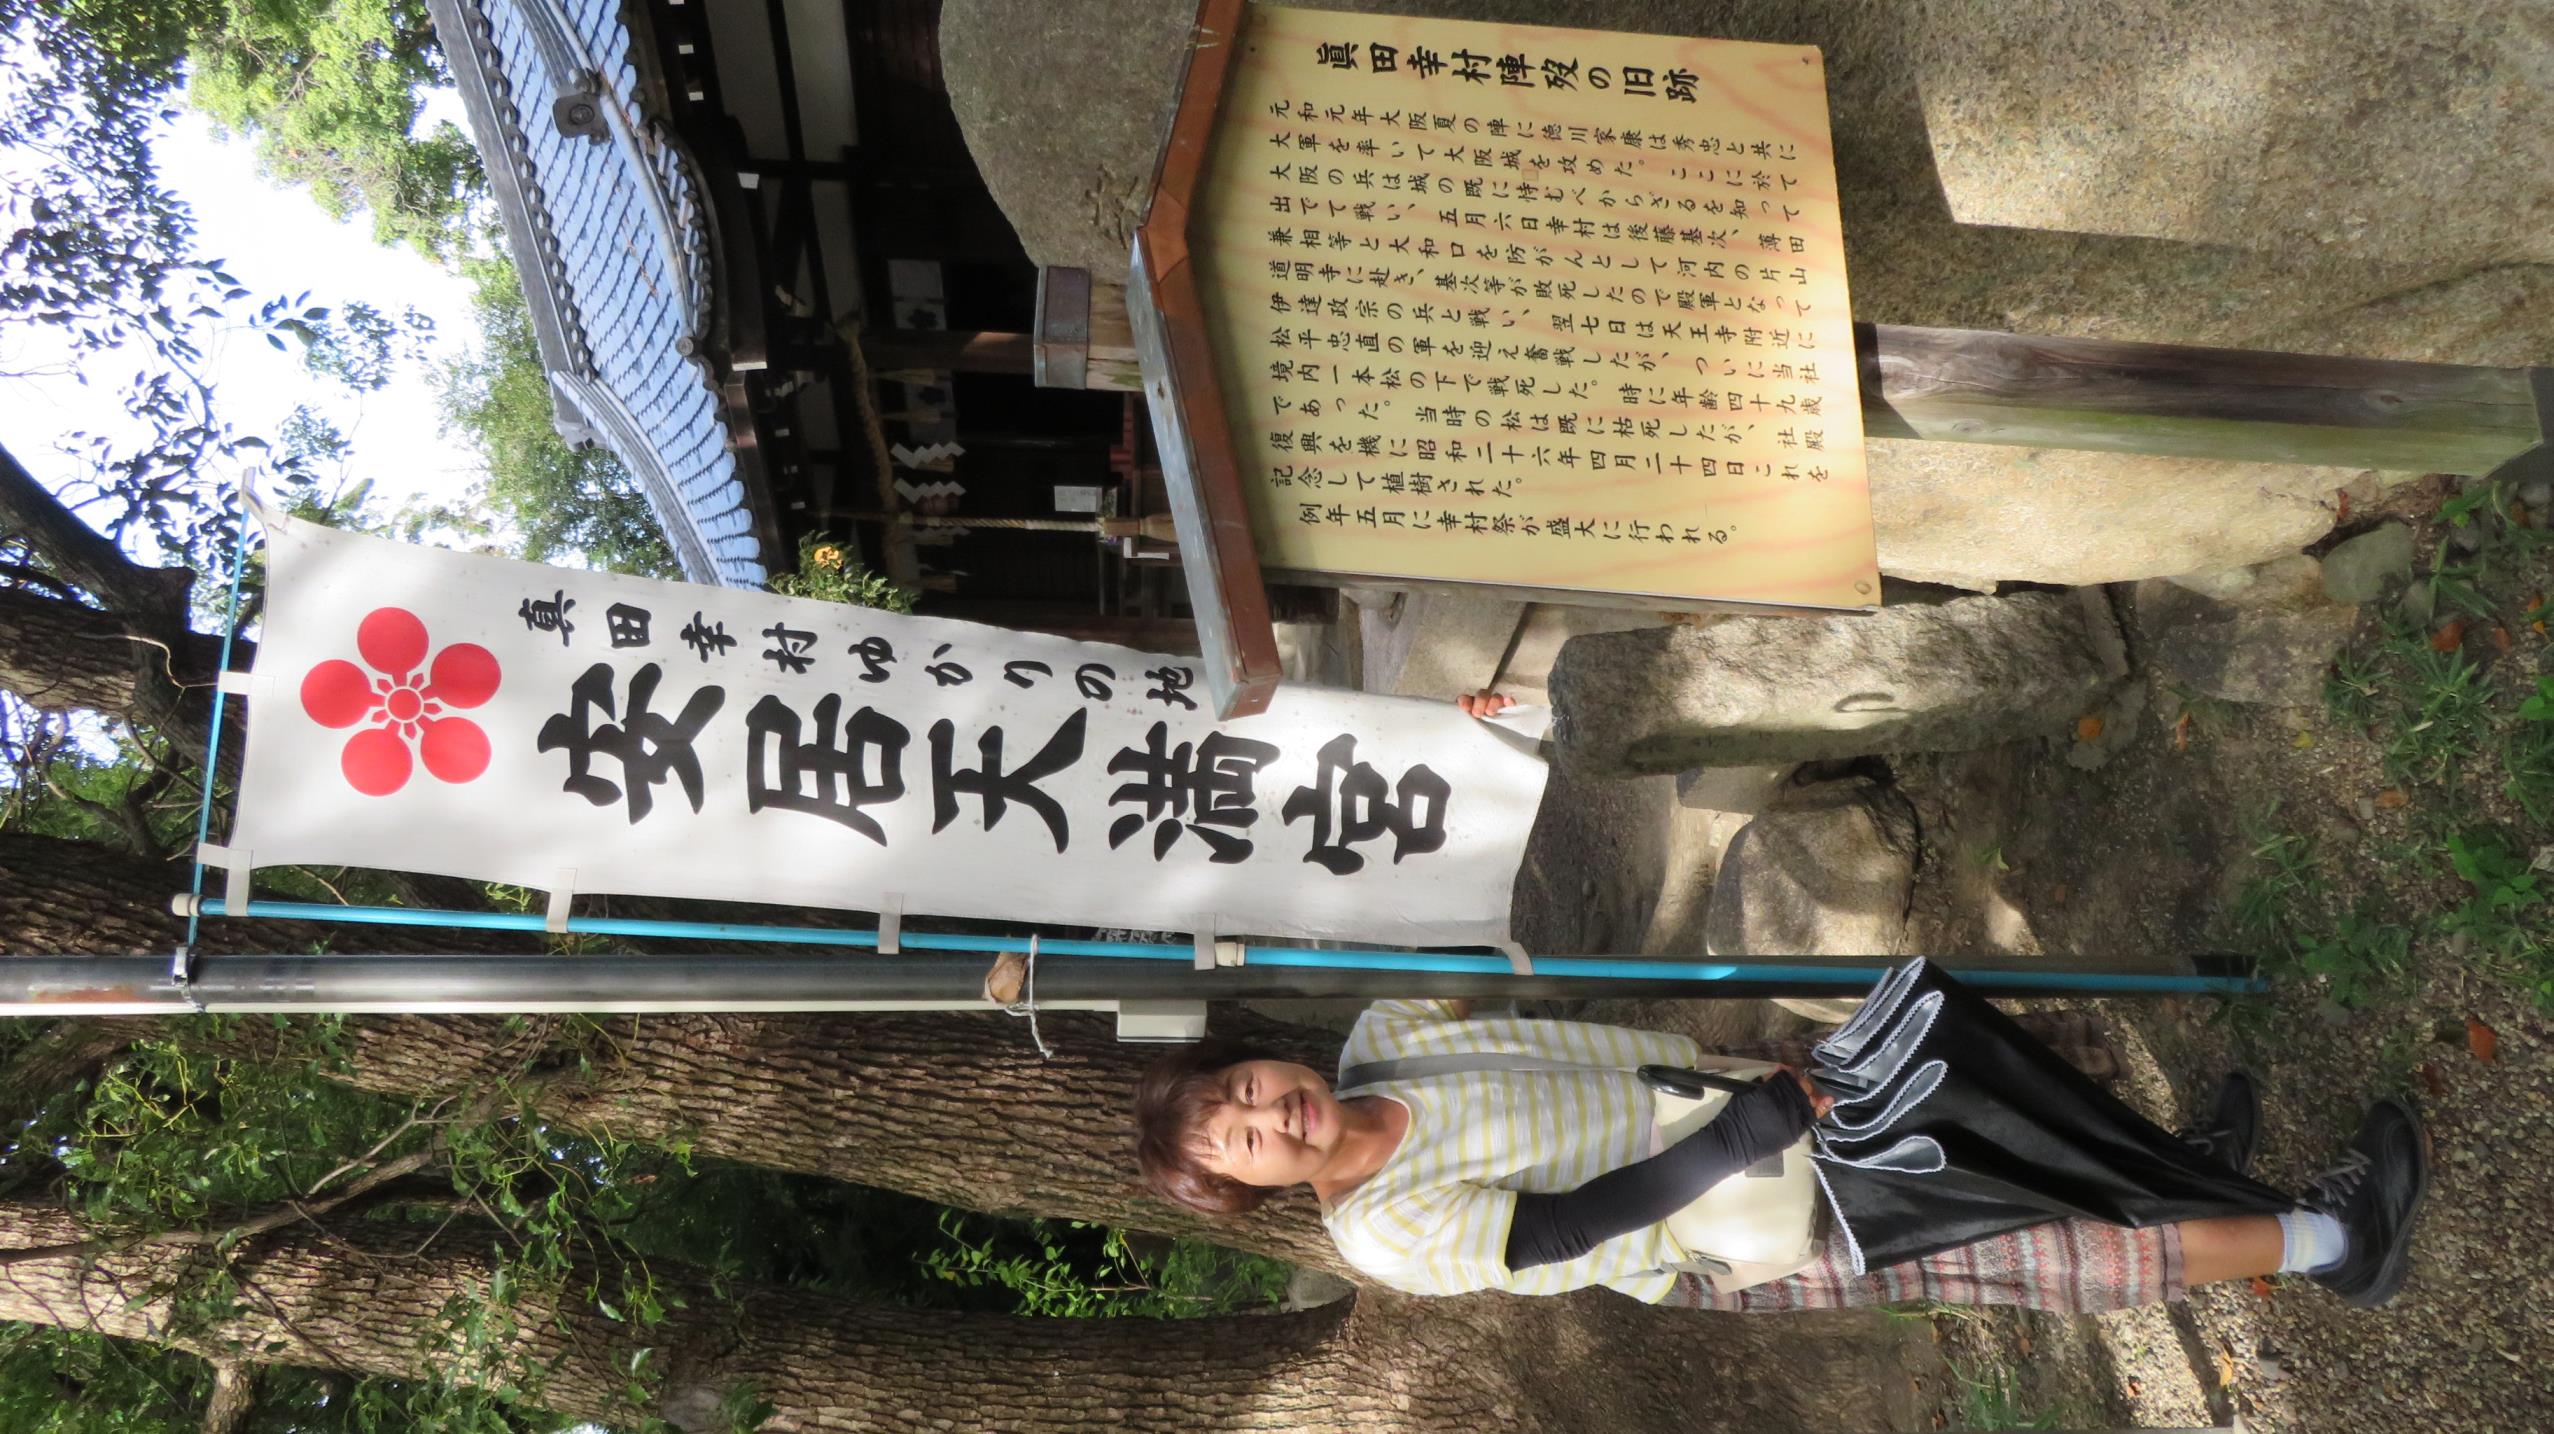 眞田幸村陣歿の旧跡
元和元年大阪夏の陣に徳川家康は秀忠と共に
大軍を率いて大阪城を攻めた。ここに於て
大阪の兵は城の既に恃むべからざるを知って
出でて戦い、五月六日幸村は後藤基次、薄田
兼相等と大和口を防がんとして河内の片山
道明寺に赴き、基次等が敗死したので殿軍となって
伊達政宗の兵と戦い、翌七日は天王寺附近に
松平忠直の軍を迎え奮戦したが、ついに当社
境内一本松の下で戦死した。時に年齢四十九歳
であった。当時の松は既に枯死したが、社殿
復興を機に昭和二十六年四月二十四日これを
記念して植樹された。
例年五月に幸村祭が盛大に行われる。
真田幸村ゆかりの地
安居天満宮